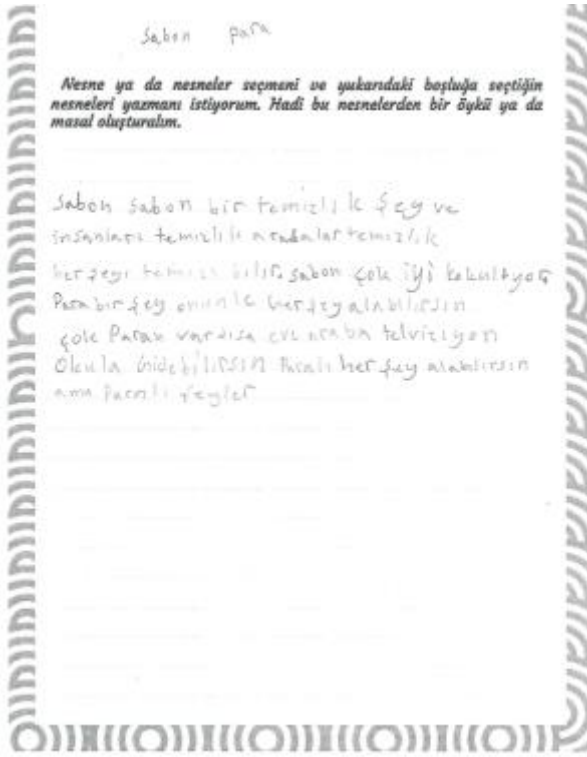 Sabon para
Nesne ya da nesneler seçmeni ve yukarıdaki boşluğa seçtiğin
nesneleri yazmanı istiyorum. Hadi bu nesnelerden bir öykü ya da
masal oluşturalım.
Sabon sabon bir temizlik şey ve
insanları temizlik temizlik
herşeyi bilir. sabon çok iyi
Para bir şey onunla herşey alabilirsin
çok Paran vardısa ev araba telviziyon
Okula gidebilirsin Paralı herşey alabilirsin
ama Paralı şeyler